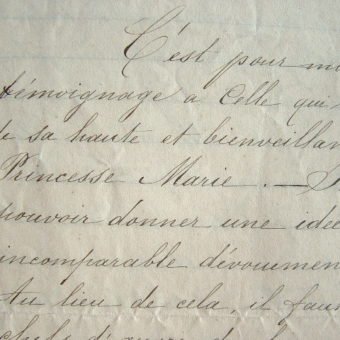 C'est pour m
témoignage a Celle qui
de sa haute et bienveillan
Princesse Marie. —
pouvoir donner une idée
incomparable dévoument
Au lieu de cela, il fau
chefs d'œuvre de